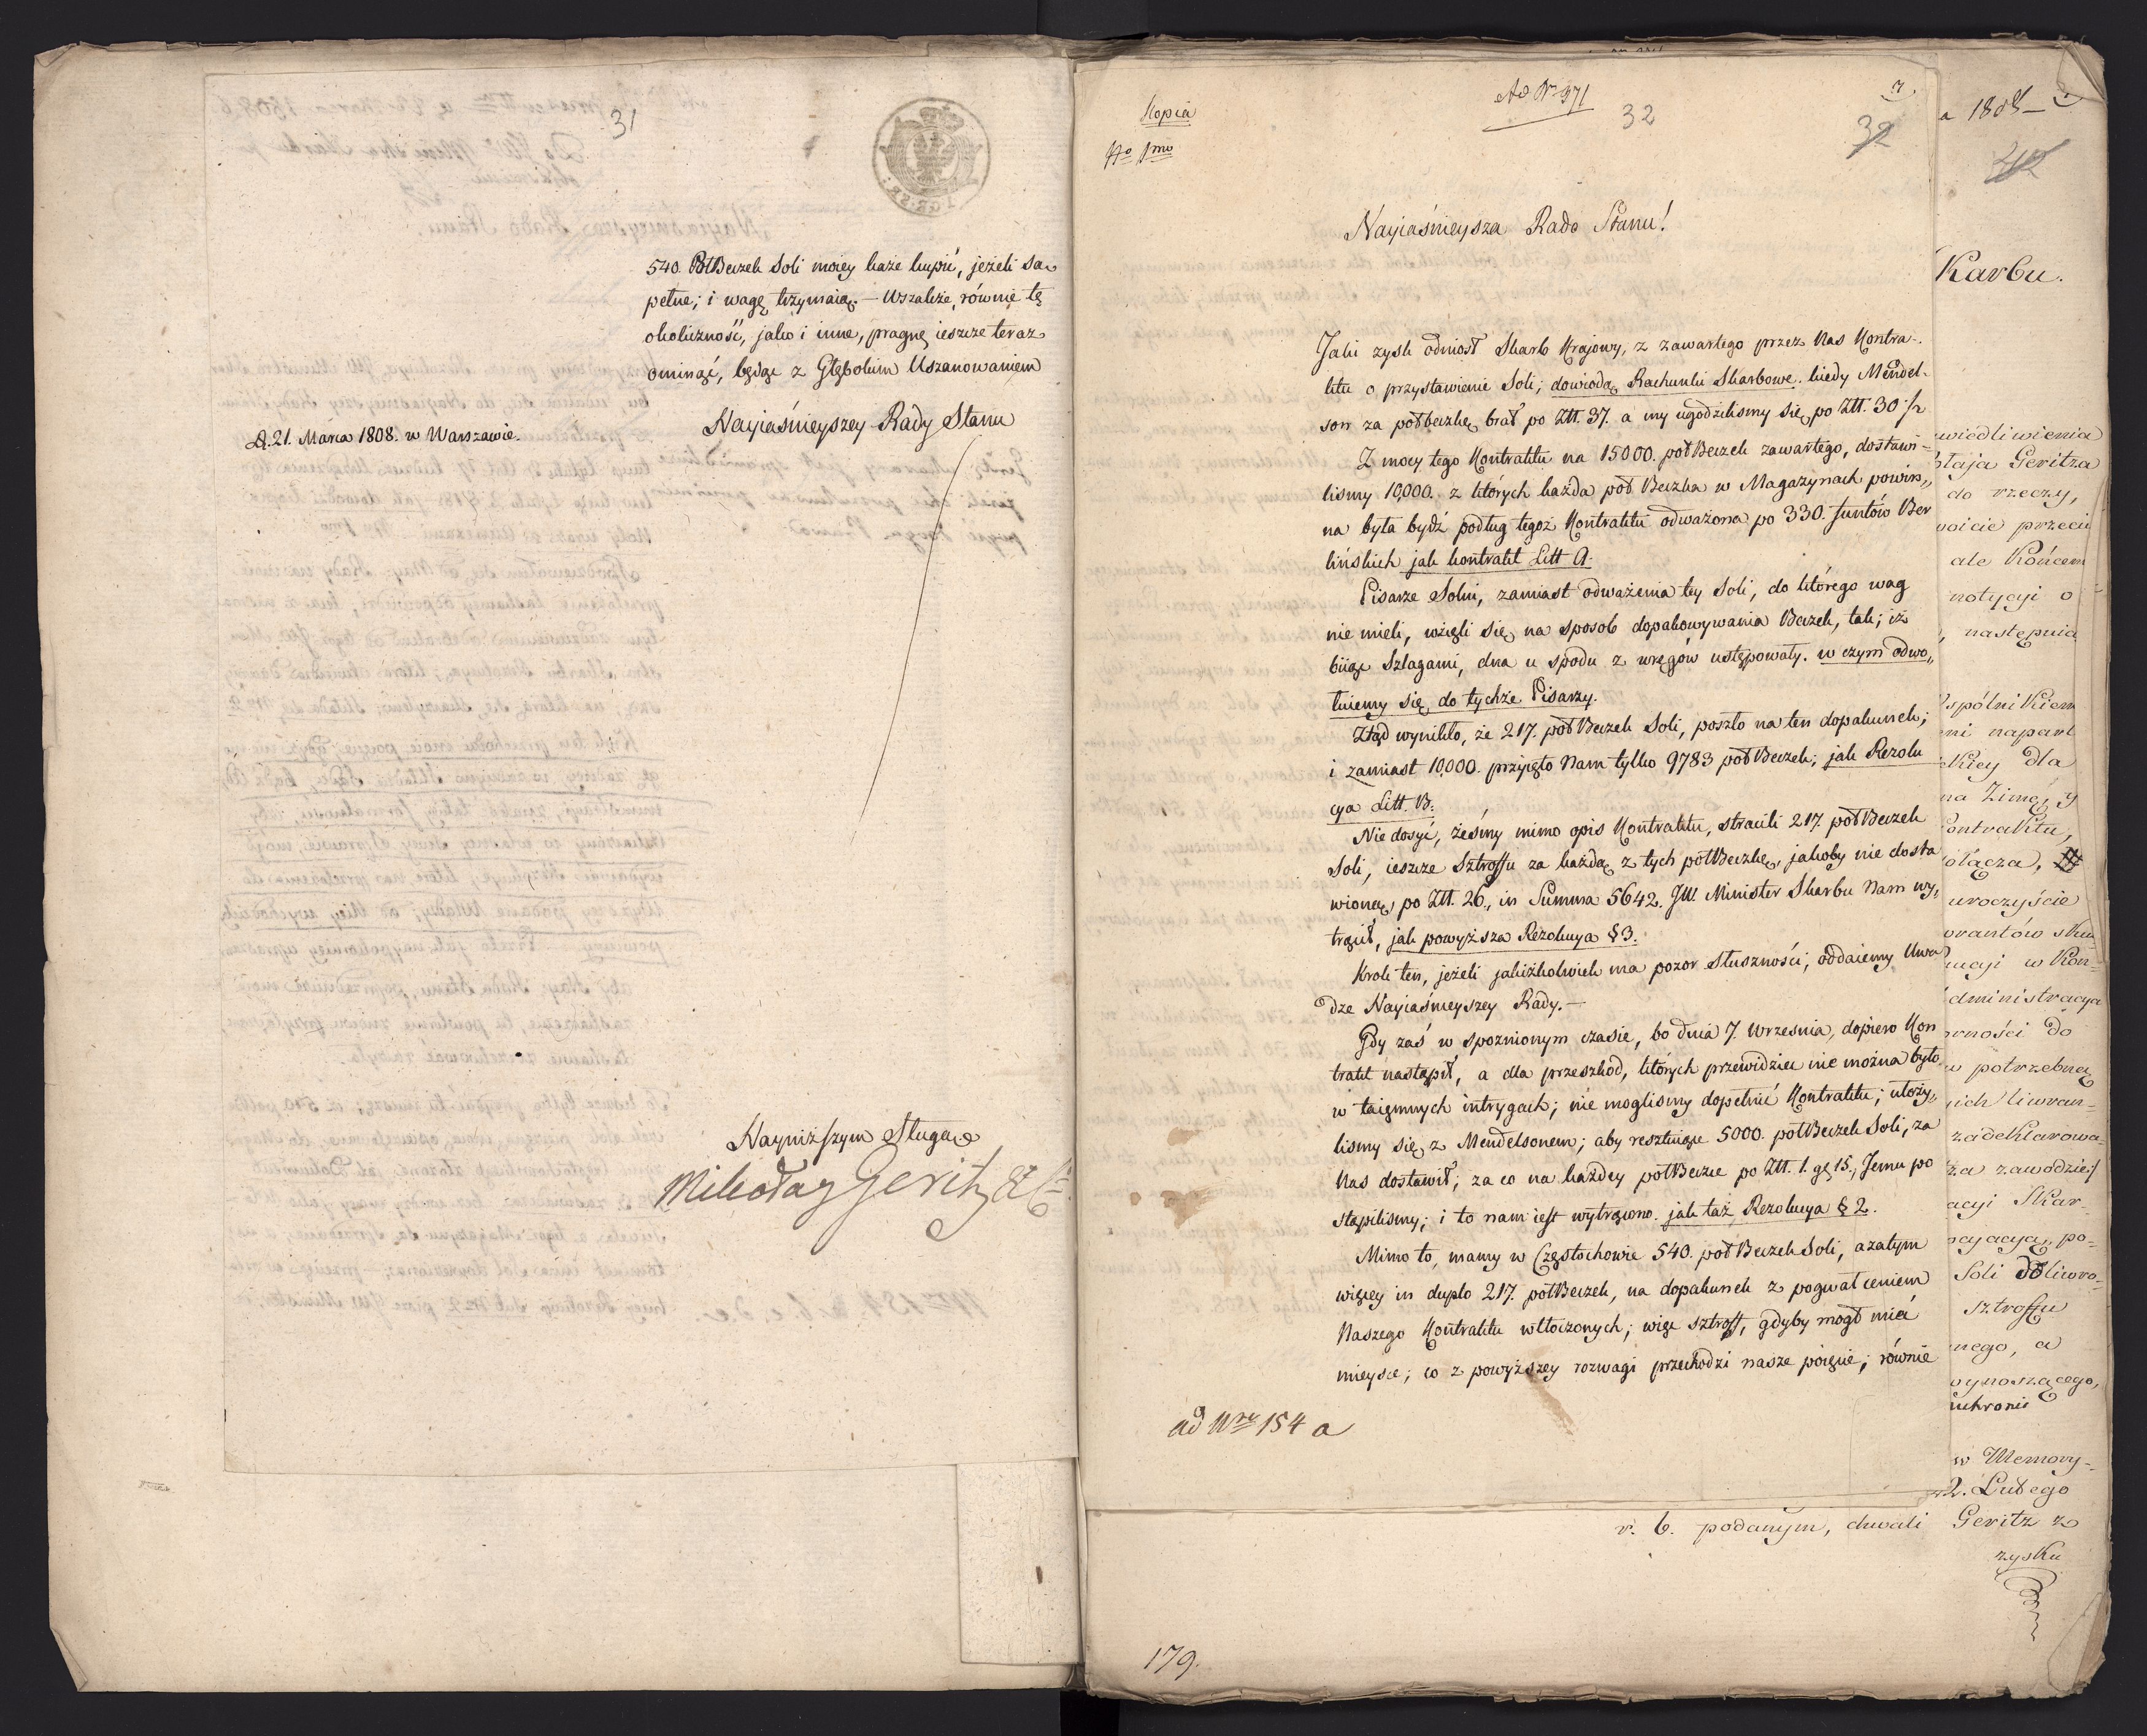 31
540. PółBeczek Soli moiey każe kupić, jeżeli są
pełne; i wagę trzymaią. — Wszakże, równie tę
okoliczność, jako i inne, pragnę ieszcze teraz
ominąć, będąc z Głębokim Uszanowaniem
Nayiaśnieyszey Rady Stanu
D. 21. Marca 1808. w Warszawie.
Nayniższym Sługą
Mikołay Geritz & C
Kopia
Ad Nr 971
32
32
No 1mo
Nayiaśnieysza Rado Stanu!
Jaki zysk odniosł Skarb Krajowy, z zawartego przez Nas Kontra-
ktu o przystawienie Soli; dowiodą Rachunki Skarbowe. kiedy Mendel-
son za półbeczkę brał po Ztt. 37. a my ugodziliśmy się po Ztt. 30
Z mocy tego Kontraktu na 15000. półBeczek zawartego, dostawi-
liśmy 10,000. z których każda pół Beczka w Magazynach powin„
na była bydź podług tegoż Kontraktu odważona po 330. funtów Ber
lińskich jak kontrakt Litt A.
Pisarze Solni, zamiast odważenia tey Soli, do którego wag
nie mieli, wzięli się na sposob dopakowywania Beczek, tak; iż
biiąc Szlagami, dna u spodu z wręgów ustępowały. w czym odwo„
łuiemy się do tychże Pisarzy.
Ztąd wynikło, że 217. półBeczek Soli, poszło na ten dopakunek;
i zamiast 10,000. przyięto Nam tylko 9783 półBeczek; jak Rezolu
cya Litt. B.
Nie dosyć, żeśmy mimo opis Kontraktu, stracili 217. półBeczek
Soli, ieszcze Sztroffu za każdą z tych półBeczkę, jakoby nie dosta
wioną, po Ztt. 26., in Summa 5642. JW. Minister Skarbu Nam wy„
trącił, jak powyższa Rezolucya § 3.
Krok ten, jeżeli jakiżkolwiek ma pozor słuszności, oddaiemy Uwa
dze Nayiaśnieyszey Rady. —
Gdy zaś w spoznionym czasie, bo dnia 7. Wrzesnia, dopiero Kon
trakt nastąpił, a dla przeszkod, których przewidzieć nie można było
w taiemnych intrygach; nie mogliśmy dopełnić Kontraktu; ułoży„
liśmy się z Mendelsonem; aby resztuiące 5000. półBeczek Soli, za
Nas dostawił; za co na każdey półBeczce po Ztt. 1. gr 15., Jemu po
stąpiliśmy; i to nam iest wytrącono. jak taż Rezolucya § 2.
Mimo to, mamy w Częstochowie 540. pół Beczek Soli, a zatym
więcey in duplo 217. półBeczek, na dopakunek z pogwałceniem
Naszego Kontraktu wtłoczonych; więc sztroff, gdyby mogł mieć
mieysce; co z powyższey rozwagi przechodzi nasze poięcie; równie
ad Nrm 154 a
179.
a 1808 —
42
Karbu.
wiedliwienia
łaja Geritza
do rzeczy,
woicie przeciw
ale Końcem
notycyi o
, następnia
spólnikiem
ni napart
Kiey dla
na Zimę, y
ontraktu,
ołącza,
uroczyście
w Kon-
dministracya
ności do
w potrzebną
ich liwran-
zadeklarowa-
za zawodzie
acyi Skar-
po-
Soli doliwro-
sztroffu
nego, a
wynoszącego,
uchronić
w Memory-
2. Lutego
r. b. podanym, chwali Geritz z
zysku